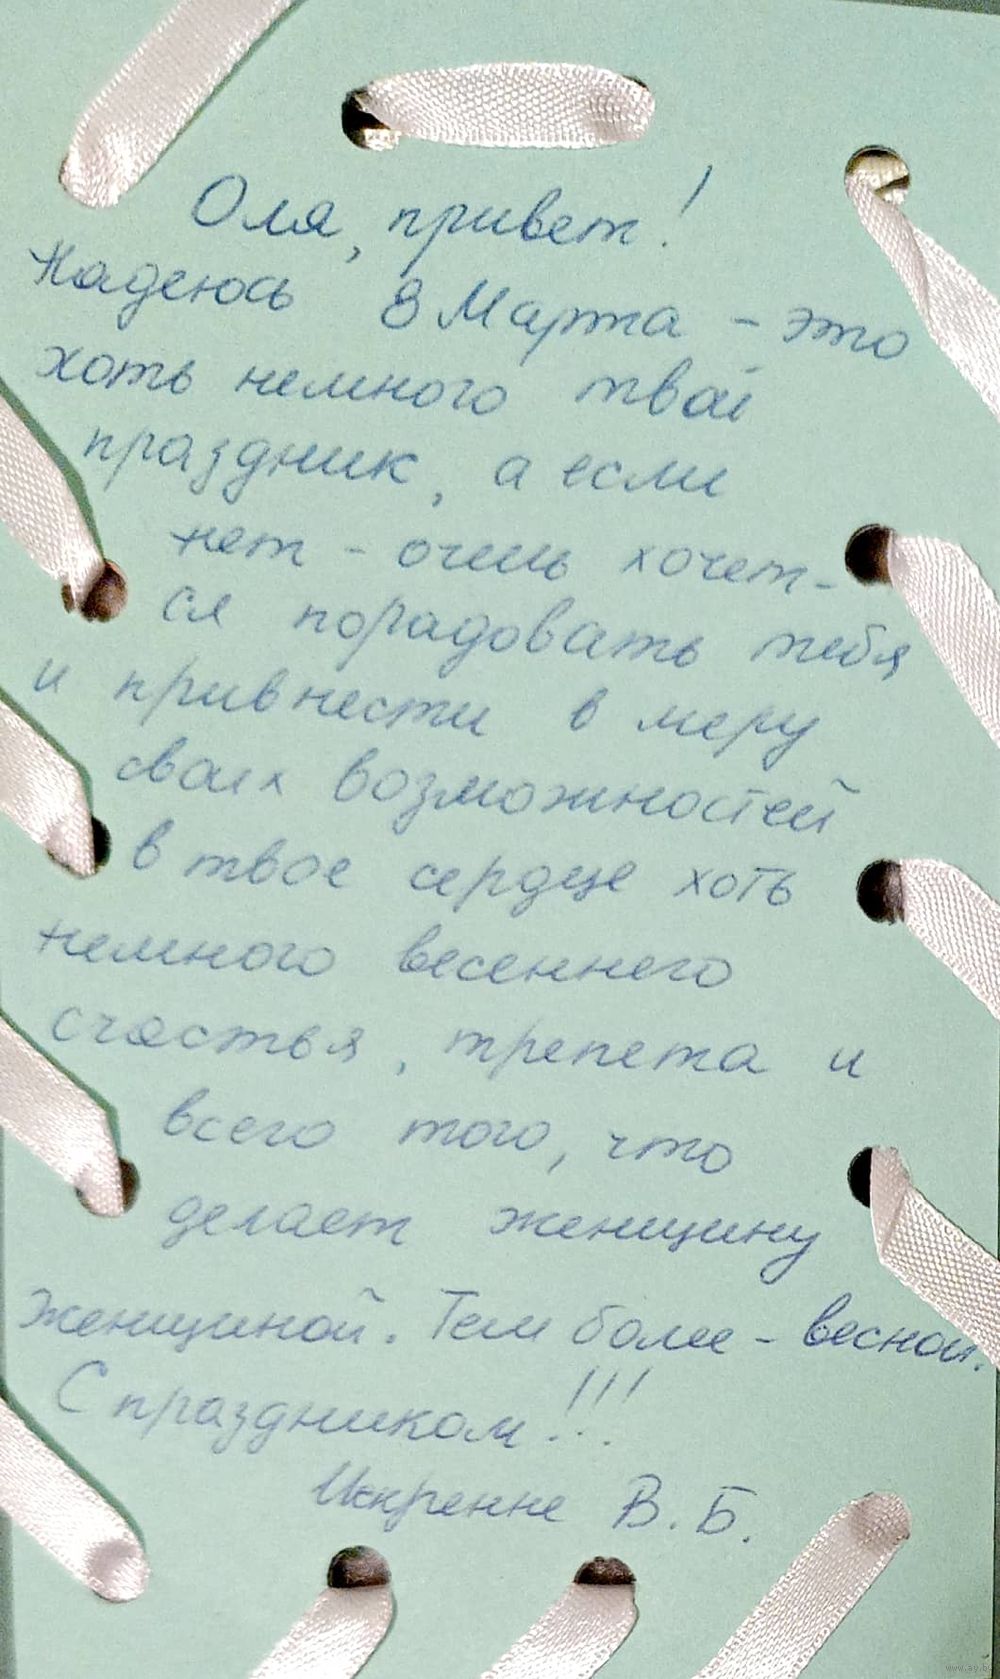 Оля, привет!
Надеюсь 8 Марта - это
хоть немного твой
праздник, а если
нет - очень хочет-
ся порадовать тебя
и привнести в меру
своих возможностей
в твое сердце хоть
немного весеннего
счастья, трепета и
всего того, что
делает женщину
женщиной. Тем более - весной.
С праздником!!!
Искренне В. Б.